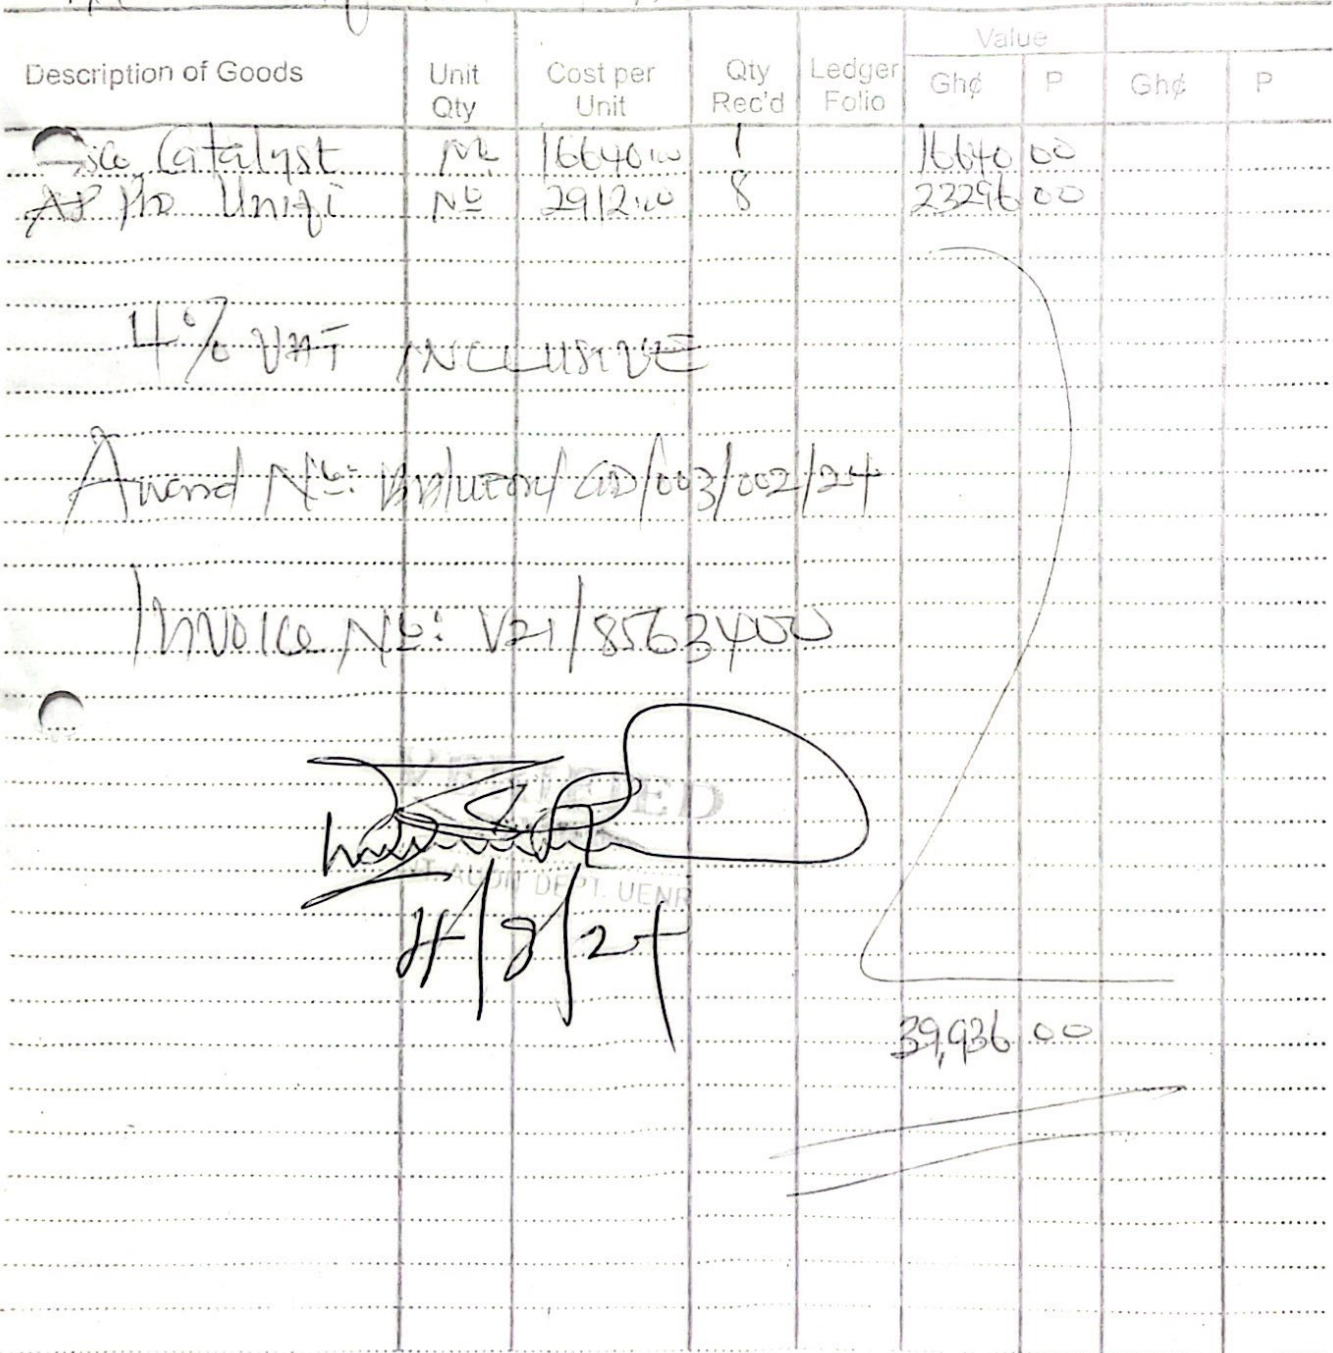 Value
Description of Goods Unit Qty Cost per Unit Qty Rec'd Ledger Folio Gh¢ P Gh¢ P
Catalyst No 16640.00 1 16640 00
AP Pro Unifi No 2912.00 8 23296 00
4% VAT INCLUSIVE
Award No: /003/002/24
Invoice No: V21/8563400
VERIFIED
INT. AUDIT DEPT. UENR
4/8/24
39,936 00